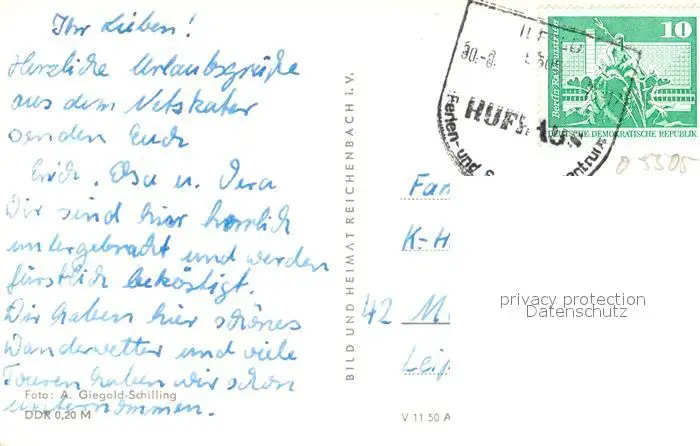 Ihr Lieben!
Herzliche Urlaubsgrüße
aus dem Netzkater
senden Euch
Erich, Elsa u. Vera
Wir sind hier herrlich
untergebracht und werden
fürstlich beköstigt.
Wir haben hier schönes
Wanderwetter und viele
Touren haben wir schon
unternommen.
Foto: A. Giegold-Schilling
DDR 0,20 M
BILD UND HEIMAT REICHENBACH i. V.
HUFHAUS
Ferien- und
10
Berlin, Rathausstraße
DEUTSCHE DEMOKRATISCHE REPUBLIK
05305
Fam
K-H
42 M
Leip
V 11 50 A
privacy protection
Datenschutz